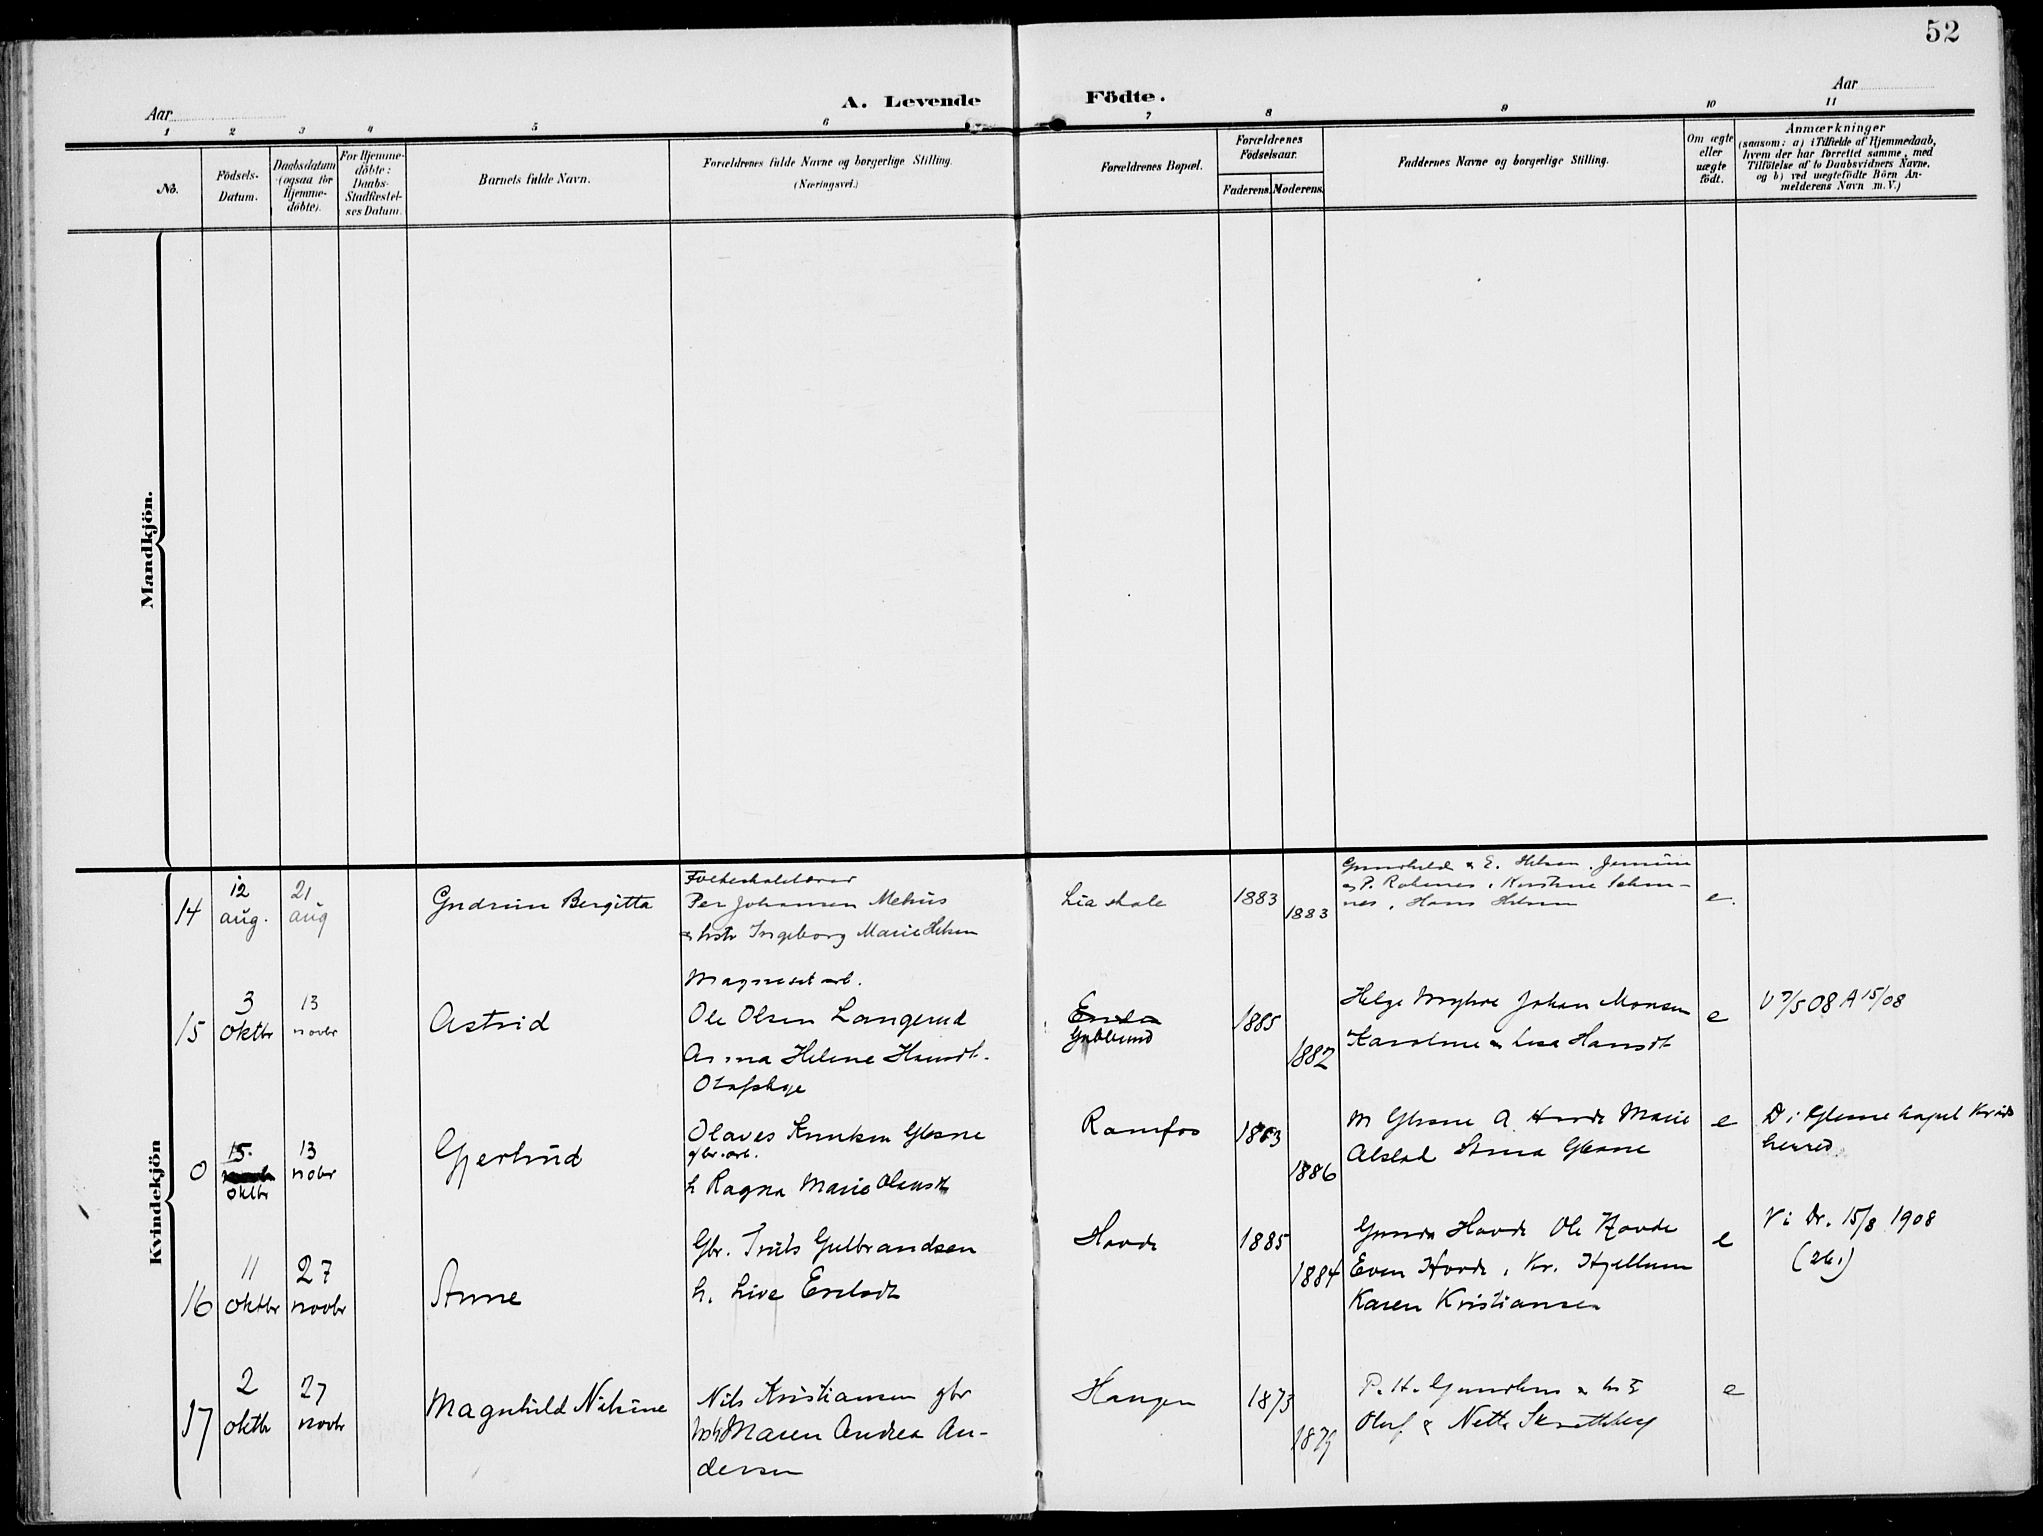 52
Aar
A. Levende
Födte.
Aar
1 2 3 4 5 6 7 8 9 10 11
No.
Födsels-
Datum.
Daabsdatum
(ogsaa for
Hjemme-
döbte).
For Hjemme-
döbte:
Daabs-
Stadfæstel-
ses Datum.
Barnets fulde Navn.
Forældrenes fulde Navne og borgerlige Stilling.
(Næringsvei.)
Forældrenes Bopæl.
Forældrenes
Födselsaar.
Faderens. Moderens.
Faddernes Navne og borgerlige Stilling.
Om ægte
eller
uægte
födt.
Anmærkninger
(saasom: a) i Tilfælde af Hjemmedaab,
hvem der har forrettet samme, med
Tilföielse af to Daabsvidners Navne,
og b) ved uægtefödte Börn An-
melderens Navn m. V.)
Mandkjön.
Kvindekjön
14
12
aug.
21
aug
Gudrun Bergitta
Folkeskolelærer
Per Johansen Mehus
& hstr Ingeborg Marie
Lia skole
1883
1883
e.
15
3
oktbr
13
novbr
Astrid
Ole Olsen Langerud
Anna Helene
Gubberud
1885
1882
Helge Myhre Johan Monsen
Karoline & Lisa
e
V 7/5 08 A 15/08
0
15.
oktbr
13
nobr
Gjertrud
Olaves Knutsen Glesne
gbr. arb.
h Ragna Marie
Ramfos
1883
1886
M Glesne A. Marie
Anna Glesne
e
D i Glesne kapel
herred
16
11
oktbr
27
novbr
Anne
Gbr. Truls Gulbrandsen
h. Live
Hovde
1885
1884
Hovde Ole Hovde
Even Hovde, Kr. Hjellum
Karen Kristiansen
e
V i Dr. 15/8 1908
17
2
oktbr
27
novbr
Magnhild Nikine
Nils Kristiansen gbr
Maren Andrea An-
dersen
Haugen
1873
1879
P. H.
Oluf & Nette
e